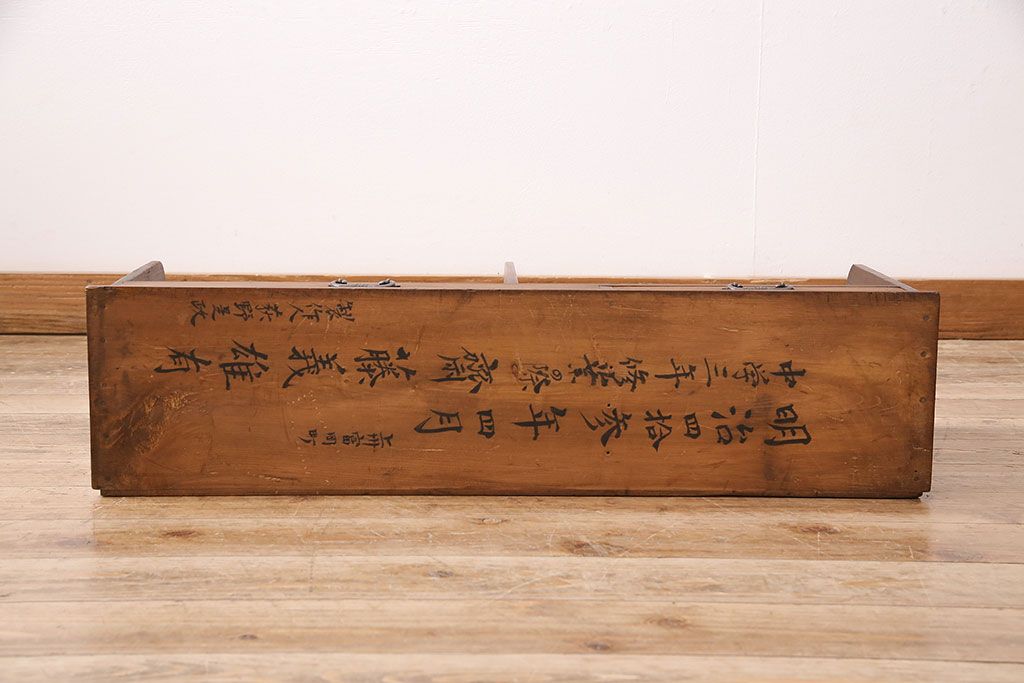 明治四拾参年四月
上州富岡町
中学三年修業の際 齋藤義雄有
製作人萩野里政